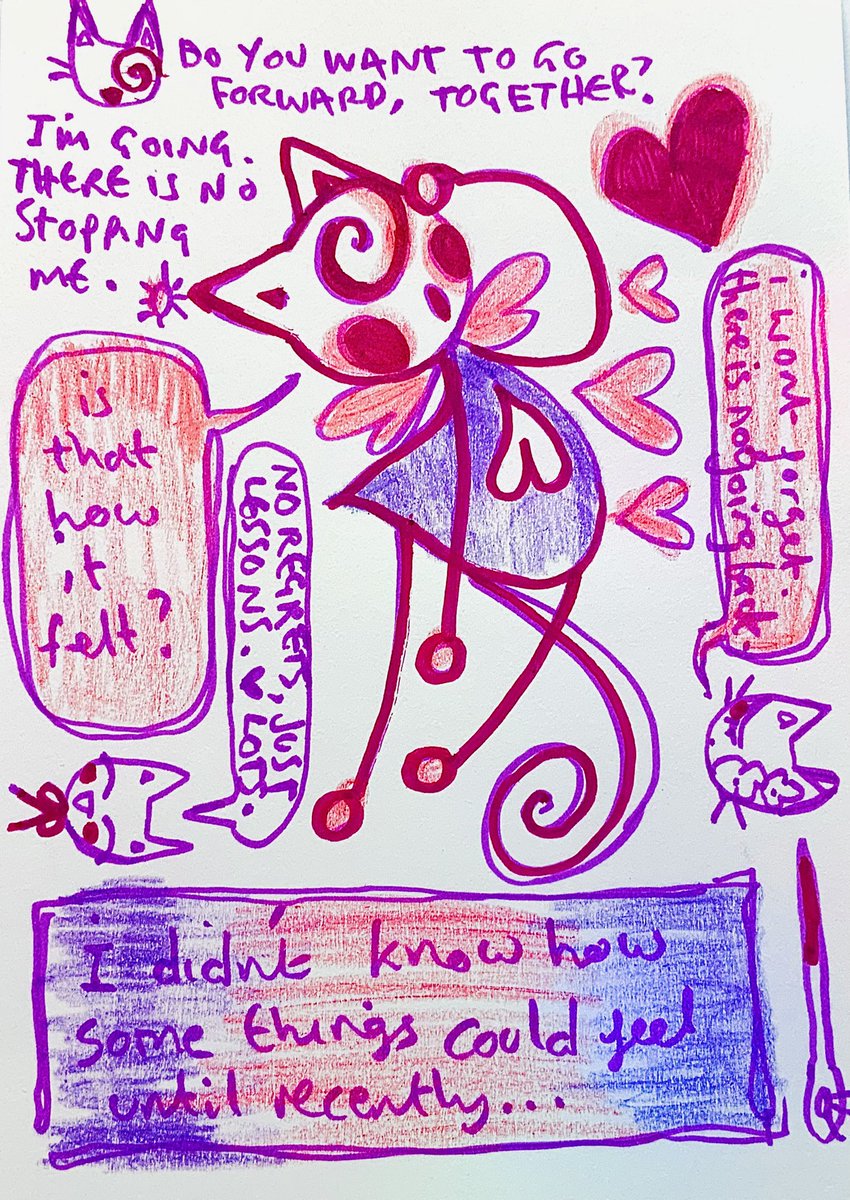 DO YOU WANT TO GO
FORWARD, TOGETHER?
I'm GOING.
THERE iS NO
StOPPING
ME.
is
that
how
it
felt?
NO REGRETS, JUST
LESSONS. LOTS
i wont forget.
there is no going back.
I didn't know how
some things could feel
until recently...